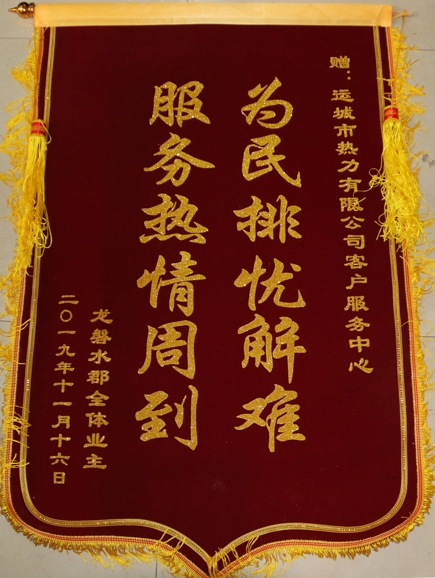 赠：运城市热力有限公司客户服务中心
为民排忧解难
服务热情周到
龙磐水郡全体业主
二〇一九年十一月十六日